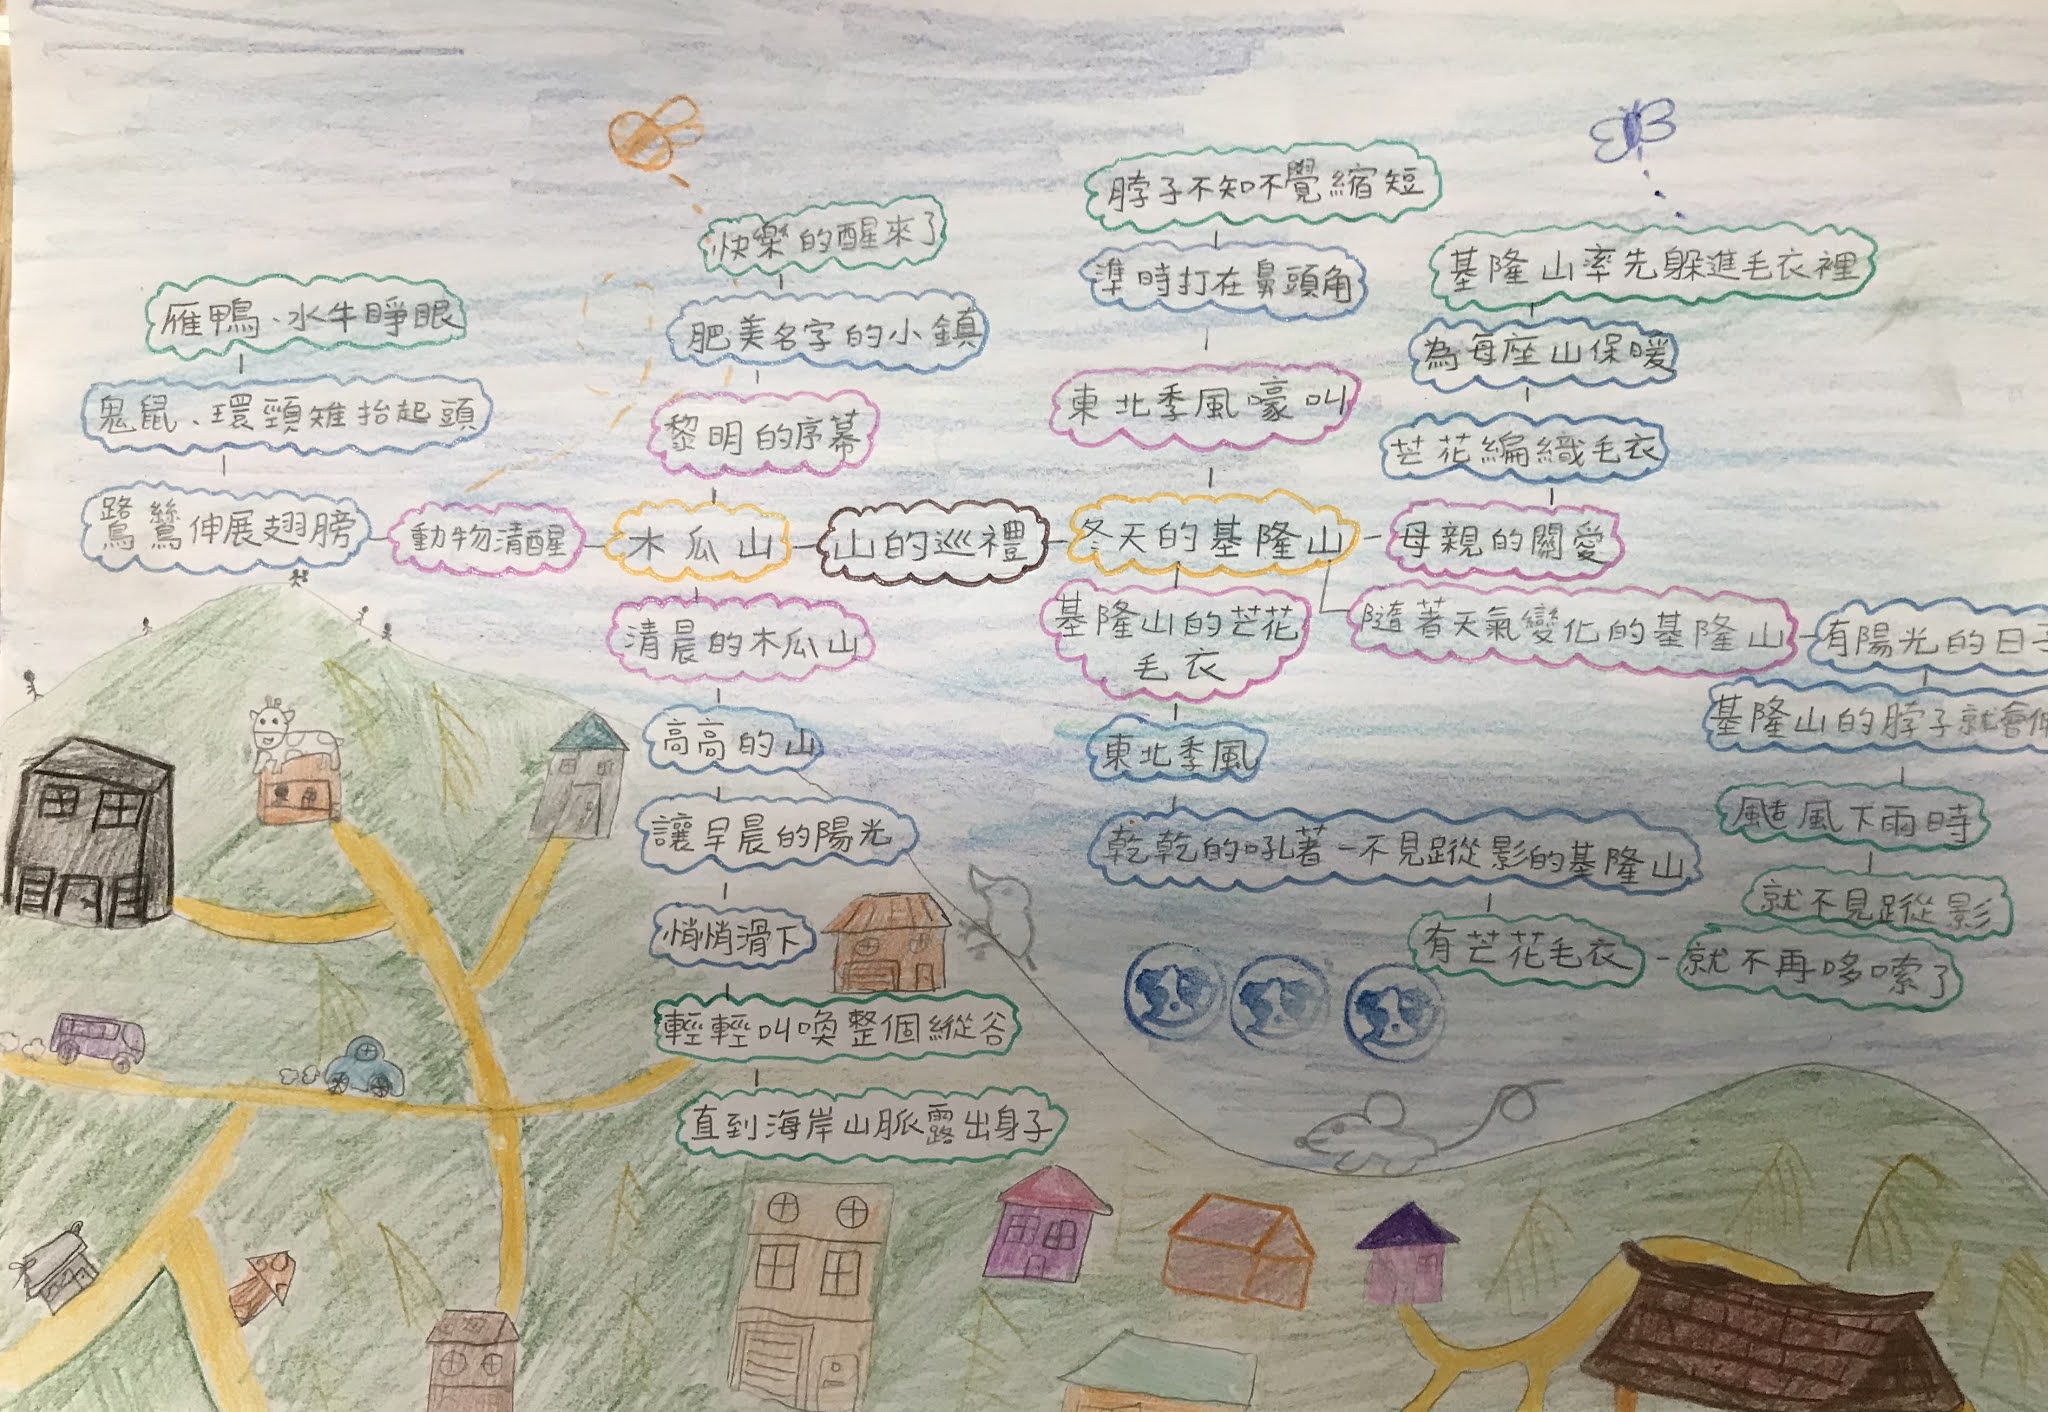 山的巡禮
木瓜山
黎明的序幕
肥美名字的小鎮
快樂的醒來了
動物清醒
鷺鷥伸展翅膀
鬼鼠、環頸雉抬起頭
雁鴨、水牛睜眼
清晨的木瓜山
高高的山
讓早晨的陽光
悄悄滑下
輕輕叫喚整個縱谷
直到海岸山脈露出身子
冬天的基隆山
東北季風嚎叫
準時打在鼻頭角
脖子不知不覺縮短
母親的關愛
芒花編織毛衣
為每座山保暖
基隆山率先躲進毛衣裡
基隆山的芒花
毛衣
東北季風
乾乾的吼著一不見蹤影的基隆山
有芒花毛衣
就不再哆嗦了
隨著天氣變化的基隆山
有陽光的日子
基隆山的脖子就會
颳風下雨時
就不見蹤影